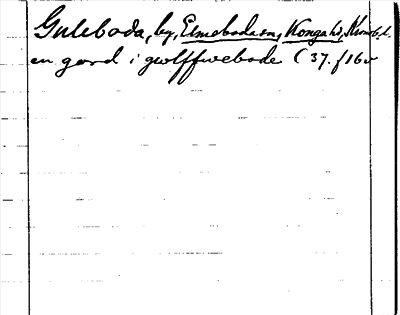 Guleboda, by, Elmeboda sn, Konga hd, Kronob. l.
en gard i gwlffwebode (37. f 16v